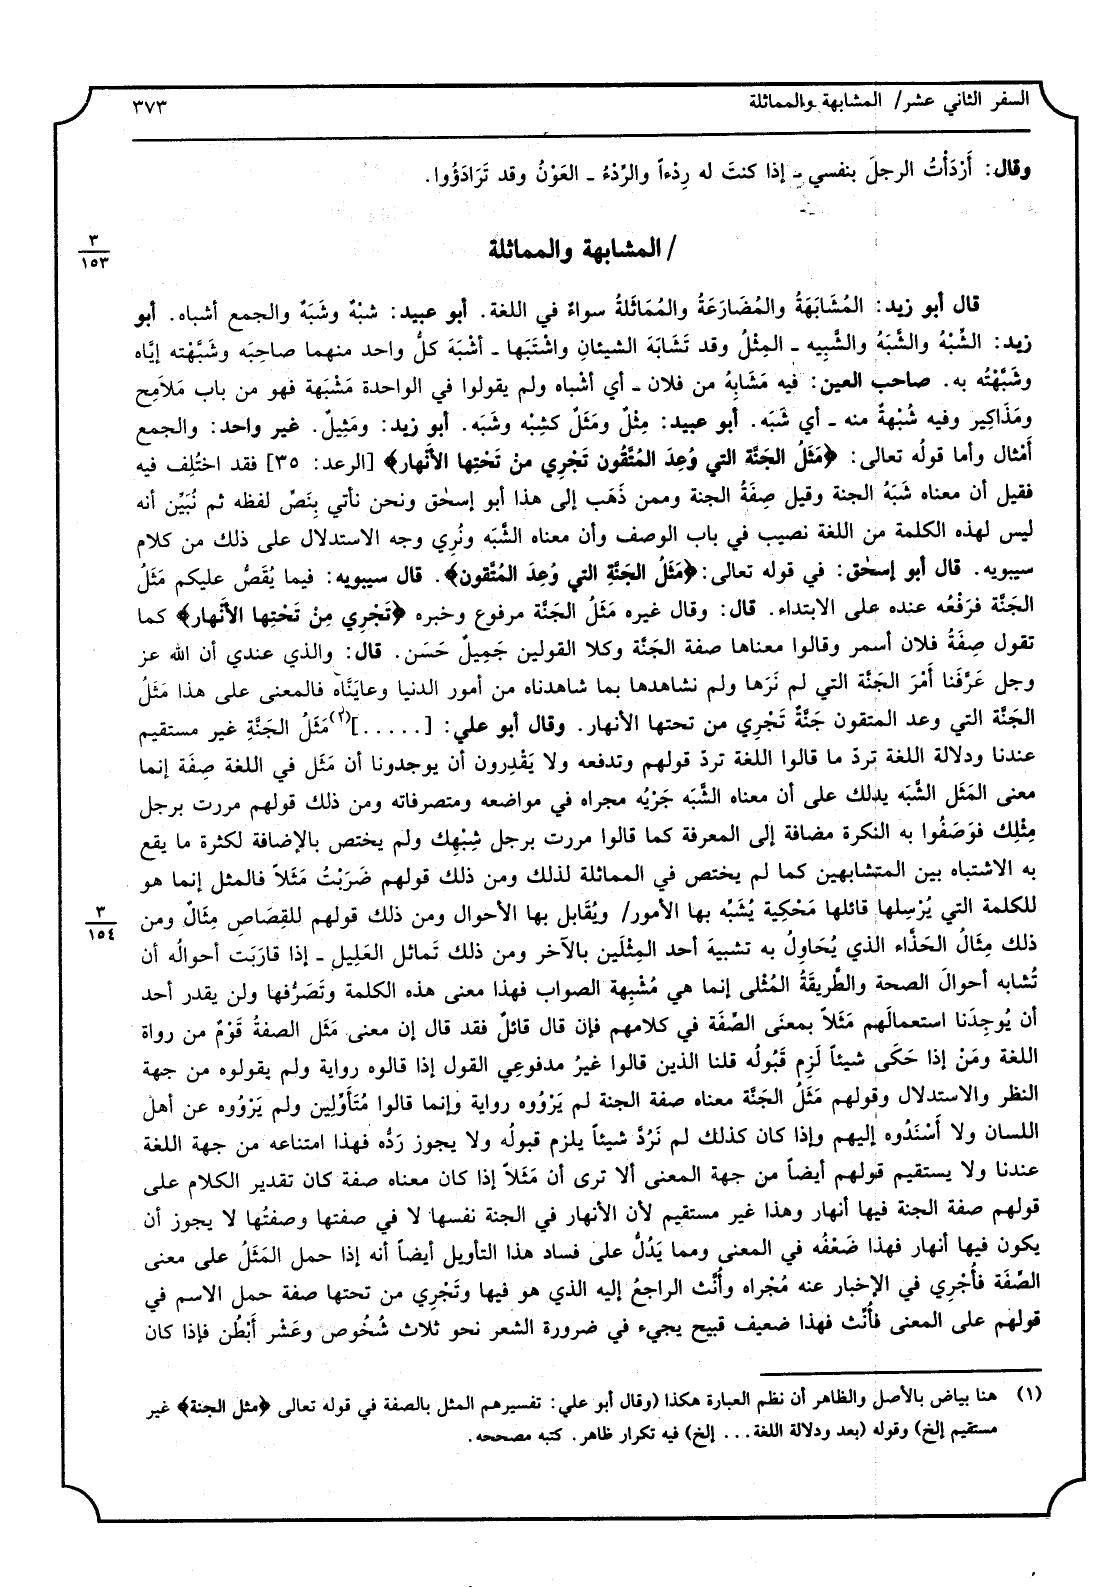 السفر الثاني عشر/ المشابهة والمماثلة
٣٧٣
وقال: أَرْدَأْتُ الرجلَ بنفسي ـ إذا كنتَ له رِدْءاً والرِّدْءُ ـ العَوْنُ وقد تَرَادَؤُوا.
٣
١٥٣
/ المشابهة والمماثلة
قال أبو زيد: المُشَابَهَةُ والمُضَارَعَةُ والمُمَاثَلَةُ سواءٌ في اللغة. أبو عبيد: شبْهٌ وشَبَهٌ والجمع أشباه. أبو
زيد: الشِّبْهُ والشَّبَهُ والشَّبِيه ـ المِثْلُ وقد تَشَابَهَ الشيئانِ واشْتَبَها ـ أشْبَهَ كلُّ واحد منهما صاحِبَه وشَبَّهْته إيَّاه
وشَبَّهْتُه به. صاحب العين: فيه مَشَابِهُ من فلان ـ أي أشْباه ولم يقولوا في الواحدة مَشْبَهة فهو من باب مَلاَمِح
ومَذَاكِير وفيه شُبْهةٌ منه ـ أي شَبَه. أبو عبيد: مِثْلٌ ومَثَلٌ كشِبْه وشَبَه. أبو زيد: ومَثِيلٌ. غير واحد: والجمع
أَمْثال وأما قولُه تعالى: ﴿مَثَلُ الجَنَّة التي وُعِدَ المُتَّقُون تَجْرِي منْ تَحْتِها الأَنْهار﴾ [الرعد: ٣٥] فقد اختُلِف فيه
فقيل أن معناه شَبَهُ الجنة وقيل صِفَةُ الجنة وممن ذَهَب إلى هذا أبو إسحٰق ونحن نأتي بِنَصِّ لفظه ثم نُبَيِّن أنه
ليس لهذه الكلمة من اللغة نصيب في باب الوصف وأن معناه الشَّبَه ونُرِي وجه الاستدلال على ذلك من كلام
سيبويه. قال أبو إسحٰق: في قوله تعالى: ﴿مَثَلُ الجَنَّةِ التي وُعِدَ المُتَّقون﴾. قال سيبويه: فيما يُقَصُّ عليكم مَثَلُ
الجَنَّة فرَفْعُه عنده على الابتداء. قال: وقال غيره مَثَلُ الجَنَّة مرفوع وخبره ﴿تَجْرِي مِنْ تَحْتِها الأَنْهار﴾ كما
تقول صِفَةُ فلان أسمر وقالوا معناها صفة الجَنَّة وكلا القولين جَمِيلٌ حَسَن. قال: والذي عندي أن الله عز
وجل عَرَّفَنا أَمْرَ الجَنَّة التي لم نَرَها ولم نشاهدها بما شاهدناه من أمور الدنيا وعايَنَّاه فالمعنى على هذا مَثَلُ
الجَنَّة التي وعد المتقون جَنَّةٌ تَجْرِي من تحتها الأنهار. وقال أبو علي: [.....](٢)مَثَلُ الجَنَّةِ غير مستقيم
عندنا ودلالة اللغة تردّ ما قالوا اللغة تردّ قولهم وتدفعه ولا يَقْدِرون أن يوجدونا أن مَثَل في اللغة صِفَة إنما
معنى المَثَل الشَّبَه يدلك على أن معناه الشَّبَه جَرْيُه مجراه في مواضعه ومتصرفاته ومن ذلك قولهم مررت برجل
مِثْلِك فوَصَفُوا به النكرة مضافة إلى المعرفة كما قالوا مررت برجل شِبْهِك ولم يختص بالإضافة لكثرة ما يقع
به الاشتباه بين المتشابهين كما لم يختص في المماثلة لذلك ومن ذلك قولهم ضَرَبْتُ مَثَلاً فالمثل إنما هو
للكلمة التي يُرْسِلها قائلها مَحْكِية يُشَبَّه بها الأمور/ ويُقَابل بها الأحوال ومن ذلك قولهم للقِصَاصِ مِثَالٌ ومن
٣
١٥٤
ذلك مِثَالُ الحَذَّاء الذي يُحَاوِلُ به تشبيهَ أحد المِثْلَين بالآخر ومن ذلك تَماثل العَلِيل ـ إذا قارَبَت أحوالُه أن
تُشابه أحوالَ الصحة والطَّرِيقَةُ المُثْلى إنما هي مُشْبِهة الصواب فهذا معنى هذه الكلمة وتَصَرُّفها ولن يقدر أحد
أن يُوجِدَنا استعمالَهم مَثَلاً بمعنَى الصِّفَة في كلامهم فإن قال قائلٌ فقد قال إن معنى مَثَل الصفةُ قَوْمٌ من رواة
اللغة ومَنْ إذا حَكَى شيئاً لَزِم قَبُولُه قلنا الذين قالوا غيرُ مدفوعِي القول إذا قالوه رواية ولم يقولوه من جهة
النظر والاستدلال وقولهم مَثَلُ الجَنَّة معناه صفة الجنة لم يَرْوُوه رواية وإنما قالوا مُتَأَوِّلين ولم يَرْوُوه عن أهل
اللسان ولا أَسْنَدُوه إليهم وإذا كان كذلك لم نَرُدَّ شيئاً يلزم قبولُه ولا يجوز رَدُّه فهذا امتناعه من جهة اللغة
عندنا ولا يستقيم قولهم أيضاً من جهة المعنى ألا ترى أن مَثَلاً إذا كان معناه صفة كان تقدير الكلام على
قولهم صفة الجنة فيها أنهار وهذا غير مستقيم لأن الأنهار في الجنة نفسها لا في صفتها وصفتُها لا يجوز أن
يكون فيها أنهار فهذا ضَعْفُه في المعنى ومما يَدُلُّ على فساد هذا التأويل أيضاً أنه إذا حمل المَثَلُ على معنى
الصِّفَة فأُجْرِي في الإخبار عنه مُجْراه وأُنِّث الراجعُ إليه الذي هو فيها وتَجْرِي من تحتها صفة حمل الاسم في
قولهم على المعنى فأُنِّث فهذا ضعيف قبيح يجيء في ضرورة الشعر نحو ثلاث شُخُوص وعَشْر أَبْطُن فإذا كان
(١) هنا بياض بالأصل والظاهر أن نظم العبارة هكذا (وقال أبو علي: تفسيرهم المثل بالصفة في قوله تعالى ﴿مثل الجنة﴾ غير
مستقيم إلخ) وقوله (بعد ودلالة اللغة... إلخ) فيه تكرار ظاهر. كتبه مصححه.